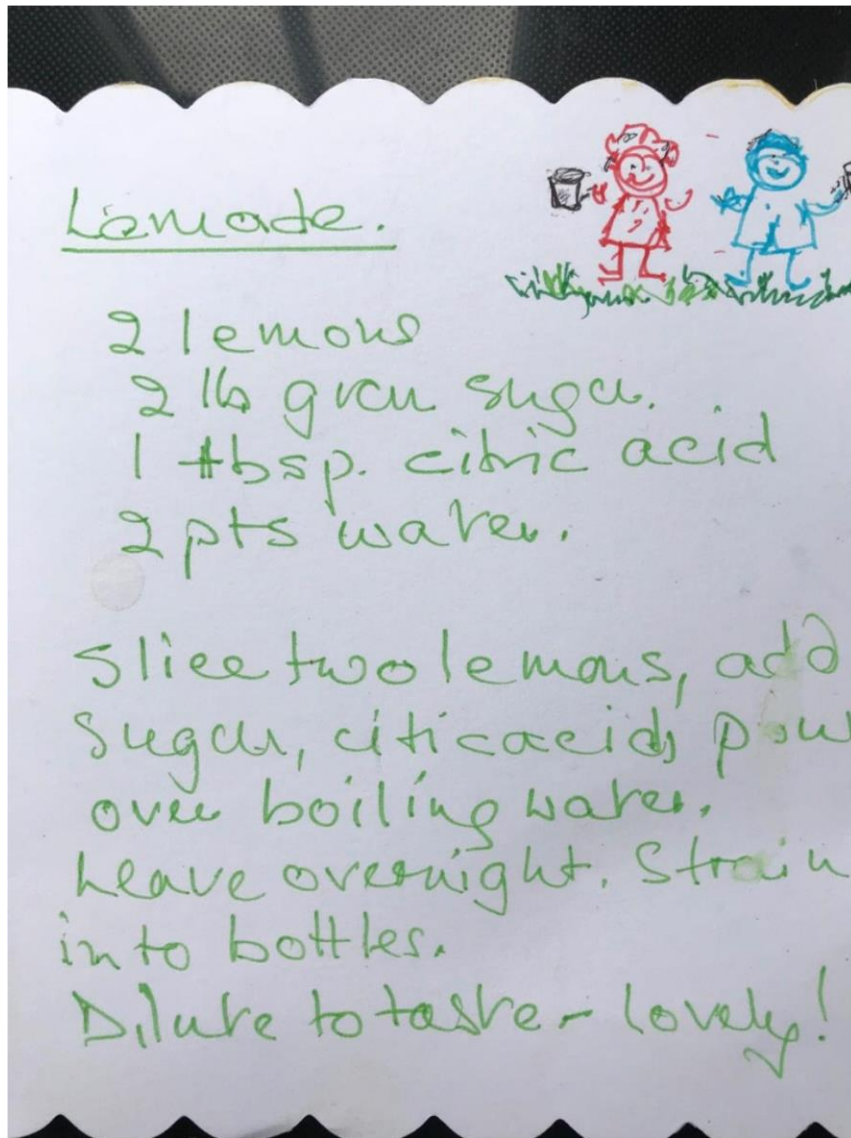 Lemade.
2 lemons
2 lb gran sugar.
1 tbsp. citric acid
2 pts water.
Slice two lemons, add
sugar, citic acid, pour
over boiling water.
Leave overnight. Strain
into bottles.
Dilute to taste - lovely!